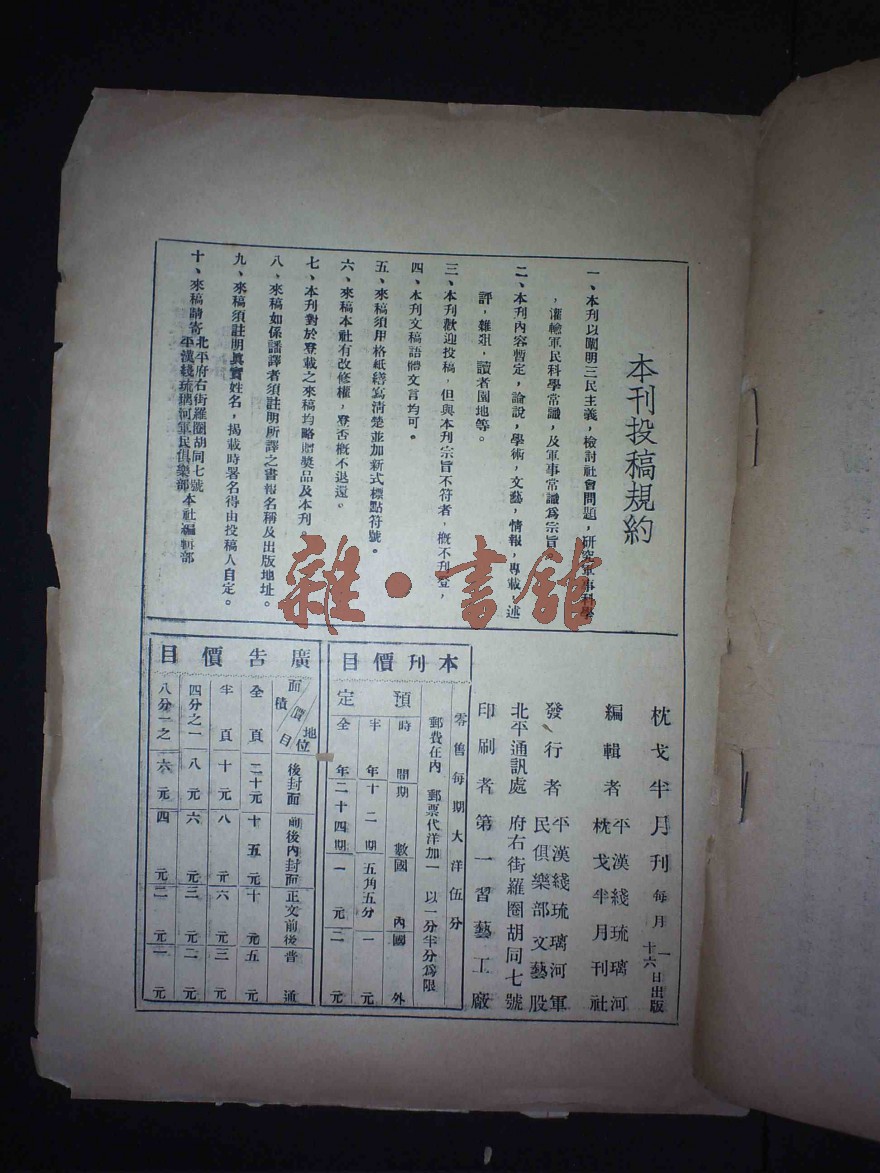 本刊投稿規約
一、本刊以闡明三民主義，檢討社會問題，研究軍事科學
，灌輸軍民科學常識，及軍事常識爲宗旨。
二、本刊內容暫定，論說，學術，文藝，情報，專載，述
評，雜俎，讀者園地等。
三、本刊歡迎投稿，但與本刊宗旨不符者，概不刊登，
四、本刊文稿語體文言均可。
五、來稿須用格紙繕寫清楚並加新式標點符號。
六、來稿本社有改修權，登否概不退還。
七、本刊對於登載之來稿均略贈獎品及本刊。
八、來稿如係譯者須註明所譯之書報名稱及出版地址。
九、來稿須註明眞實姓名，揭載時署名得由投稿人自定。
十、來稿請寄北平府右街羅圈胡同七號
平漢綫琉璃河軍民俱樂部本社編輯部
雜·書館
枕戈半月刊 每月一十六日出版
編輯者 平漢綫琉璃河
枕戈半月刊社
發行者 平漢綫琉璃河軍
民俱樂部文藝股
北平通訊處 府右街羅圈胡同七號
印刷者 第一習藝工廠
本刊價目
零售每期大洋伍分
郵費在內 郵票代洋加一 以一分半分爲限
預定
時間 期數 國內 國外
半年 十二期 五角五分 一元
全年 二十四期 一元 二元
廣告價目
面積 價目 地位 後封面 前後內封面 正文前後 普通
全頁 二十元 十五元 十元 五元
半頁 十元 八元 六元 三元
四分之一 八元 六元 三元 二元
八分一之 六元 四元 二元 一元